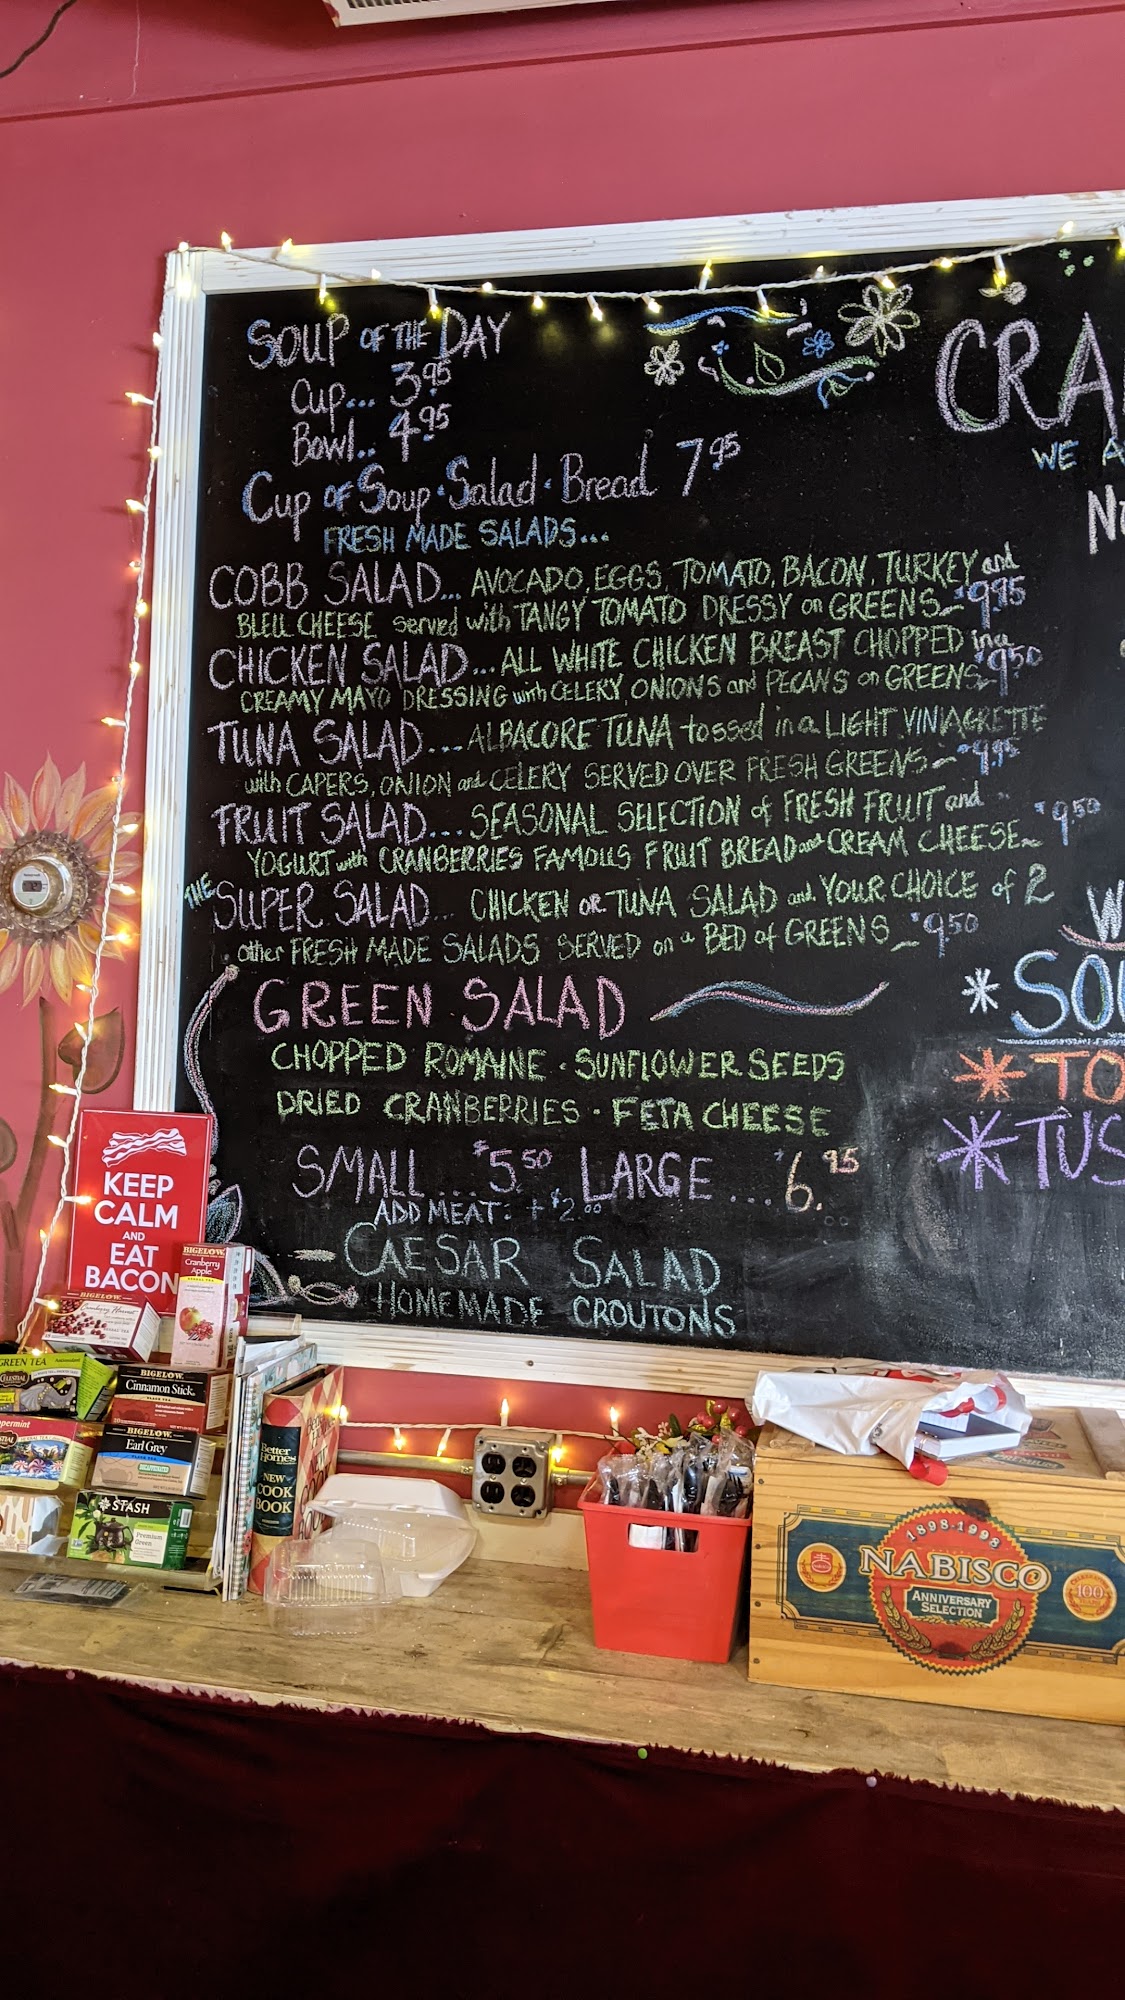 SOUP OF THE DAY
Cup... 3.95
Bowl.. 4.95
Cup of Soup · Salad · Bread 7.95
FRESH MADE SALADS...
COBB SALAD... AVOCADO, EGGS, TOMATO, BACON, TURKEY and
BLEU CHEESE served with TANGY TOMATO DRESSY on GREENS $9.95
CHICKEN SALAD... ALL WHITE CHICKEN BREAST CHOPPED in a
CREAMY MAYO DRESSING with CELERY, ONIONS and PECANS on GREENS $9.50
TUNA SALAD... ALBACORE TUNA tossed in a LIGHT VINIAGRETTE
with CAPERS, ONION and CELERY SERVED OVER FRESH GREENS
FRUIT SALAD... SEASONAL SELECTION of FRESH FRUIT and
YOGURT with CRANBERRIES FAMOUS FRUIT BREAD and CREAM CHEESE $9.50
THE SUPER SALAD... CHICKEN OR TUNA SALAD and YOUR CHOICE of 2
other FRESH MADE SALADS SERVED on a BED of GREENS $9.50
GREEN SALAD
CHOPPED ROMAINE · SUNFLOWER SEEDS
DRIED CRANBERRIES · FETA CHEESE
SMALL... $5.50 LARGE... $6.95
ADD MEAT: + $2.00
CAESAR SALAD
HOMEMADE CROUTONS
CRA
WE A
N
W
SOU
TO
TUS
KEEP
CALM
AND
EAT
BACON
BIGELOW
Cranberry
Apple
HERBAL TEA
BIGELOW
Cranberry Harvest
GREEN TEA
CELESTIAL
BIGELOW
Cinnamon Stick
BLACK TEA
BIGELOW
Earl Grey
BLACK TEA
DECAFFEINATED
STASH
Premium
Green
Better
Homes
NEW
COOK
BOOK
1898-1998
NABISCO
ANNIVERSARY
SELECTION
100